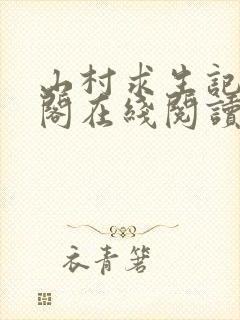 山村求生記
閣在綫閱讀
衣青箬